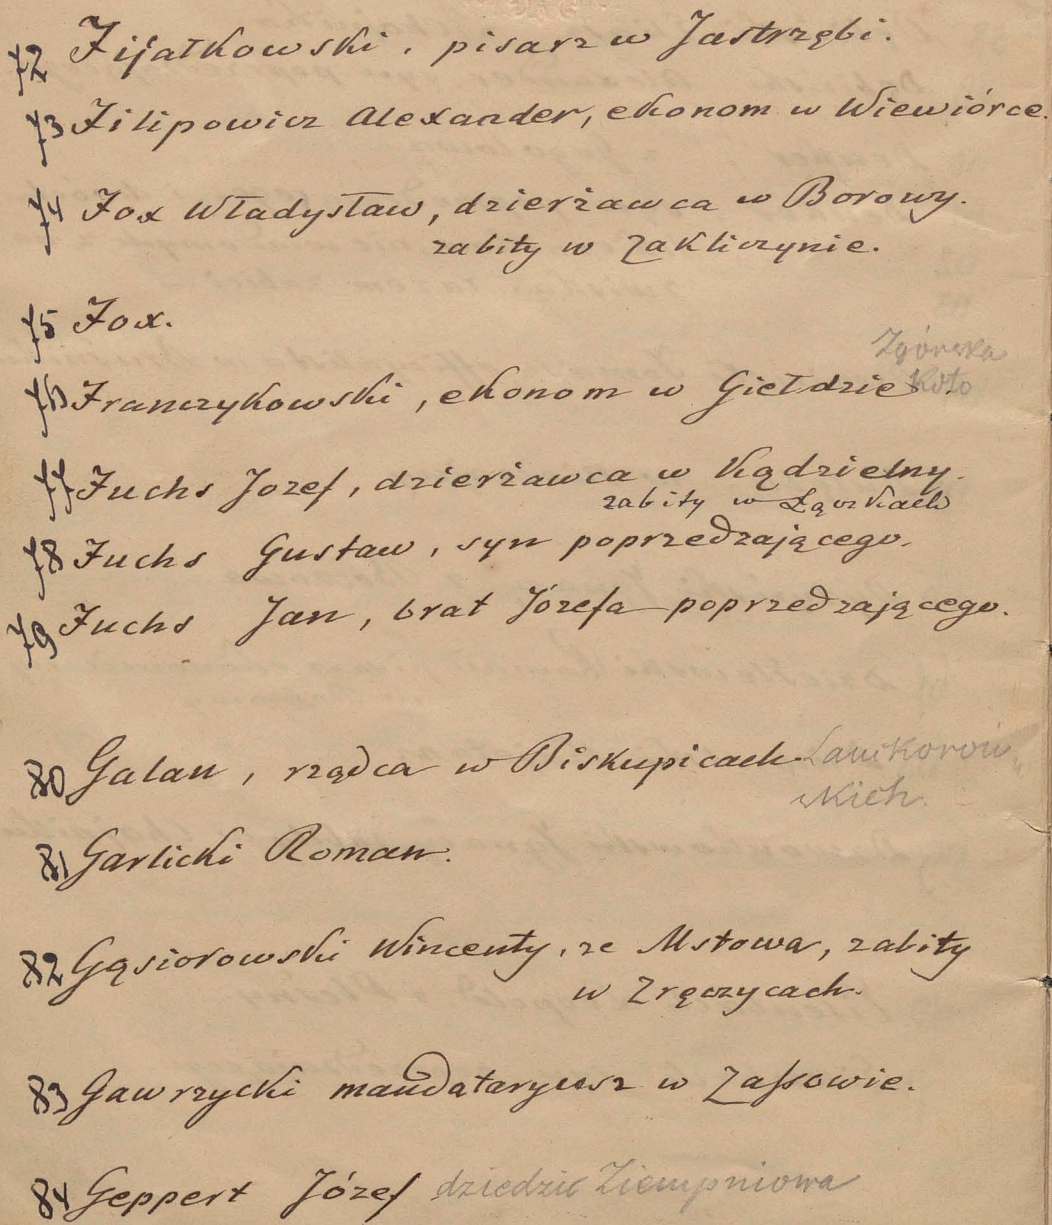 72 Fijałkowski, pisarz w Jastrzębi.
73 Filipowicz Alexander, ekonom w Wiewiórce.
74 Fox Władysław, dzierżawca w Borowy.
zabity w Zakliczynie.
75 Fox.
Zgórska
76 Franczykowski, ekonom w Giełdzie. Koło
77 Fuchs Jozef, dzierżawca w Kądzielny.
zabity w Łączkach
78 Fuchs Gustaw, syn poprzedzającego.
79 Fuchs Jan, brat Józefa poprzedzającego.
80 Galan, rządca w Biskupicach Lanckoroń„
skich.
81 Garlicki Roman.
82 Gąsiorowski Wincenty, ze Mstowa, zabity
w Zręczycach.
83 Gawrzycki mandataryusz w Zassowie.
84 Geppert Józef dziedzic Ziempniowa